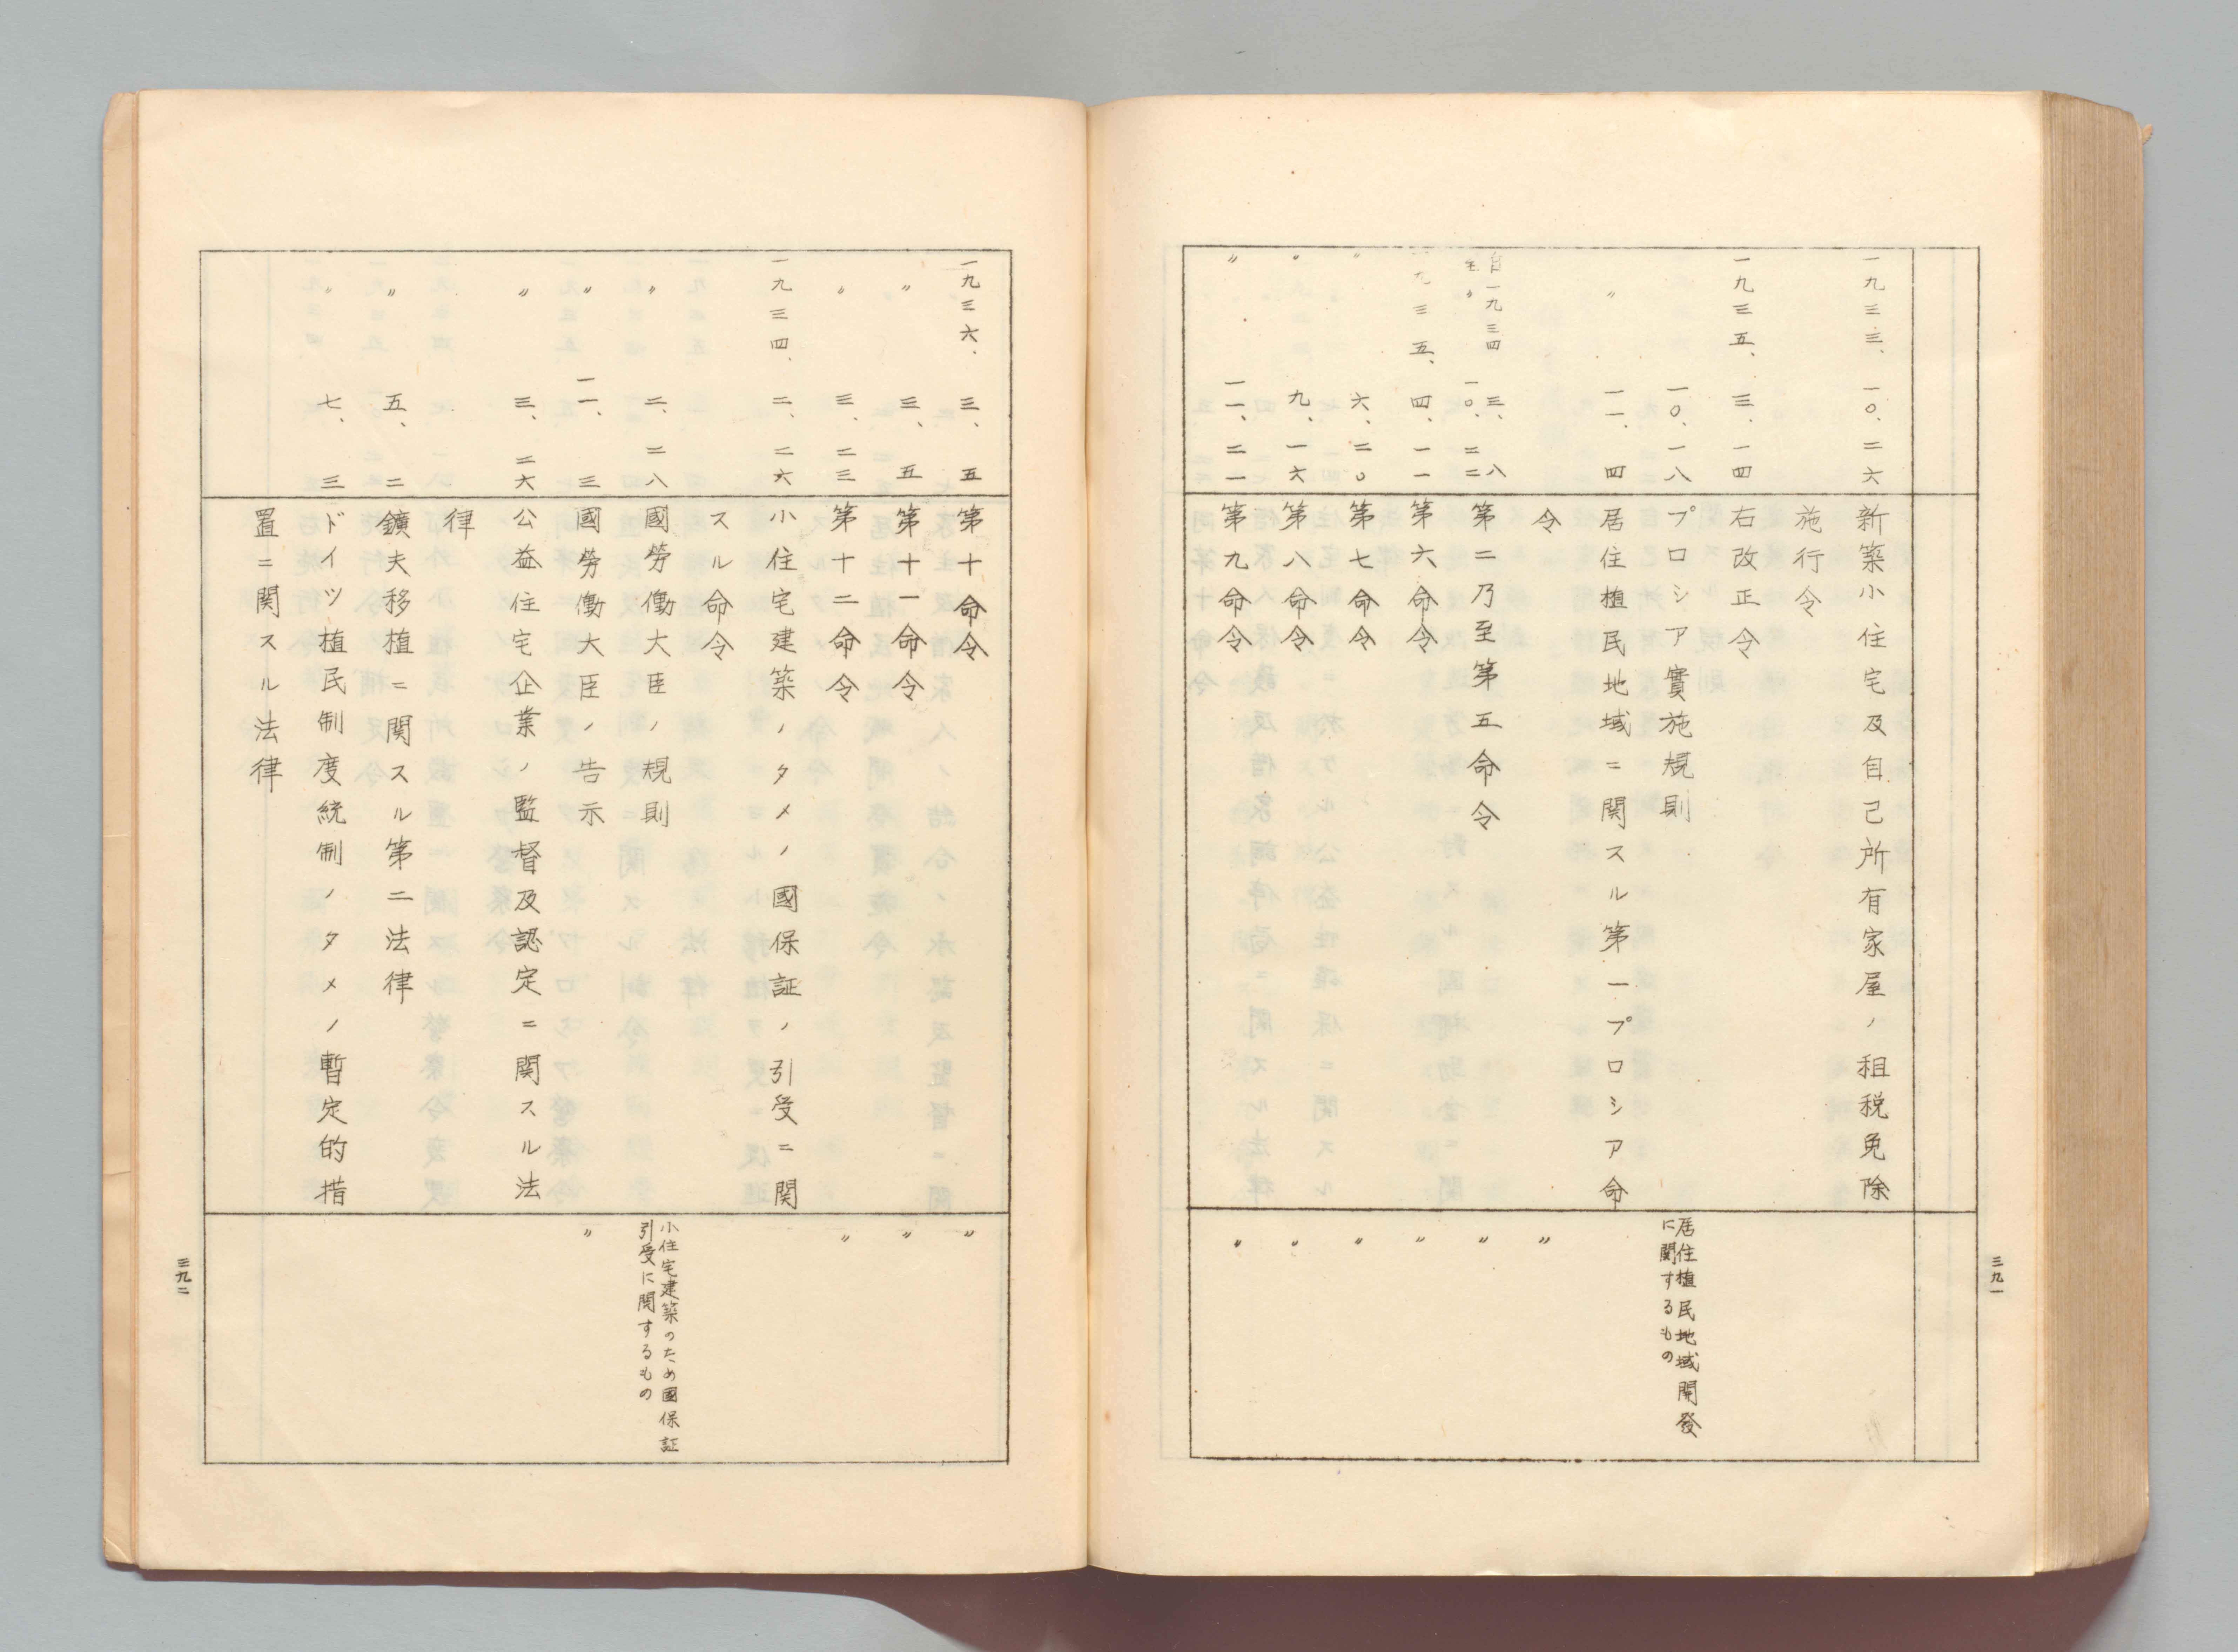 一九三三、一〇、二六
新築小住宅及自己所有家屋ノ租税免除
施行令
一九三五、三、一四
右改正令
一〇、一八
プロシア實施規則
居住植民地域開發
に関するもの
〃 一一、四
居住植民地域ニ関スル第一プロシア命
令
〃
自一九三四 三、八
至〃 一〇、二二
第二乃至第五命令
〃
一九三五、四、一一
第六命令
〃
〃 六、二〇
第七命令
〃
〃 九、一六
第八命令
〃
〃 一一、二一
第九命令
〃
三九一
一九三六、三、五
第十命令
〃
〃 三、五
第十一命令
〃
〃 三、二三
第十二命令
〃
一九三四、二、二六
小住宅建築ノタメノ國保証ノ引受ニ関
スル命令
〃 二、二八
國勞働大臣ノ規則
小住宅建築のため國保証
引受に関するもの
〃 一一、三
國勞働大臣ノ告示
〃
〃 三、二六
公益住宅企業ノ監督及認定ニ関スル法
律
〃 五、二
鑛夫移植ニ関スル第二法律
〃 七、三
ドイツ植民制度統制ノタメノ暫定的措
置ニ関スル法律
三九二